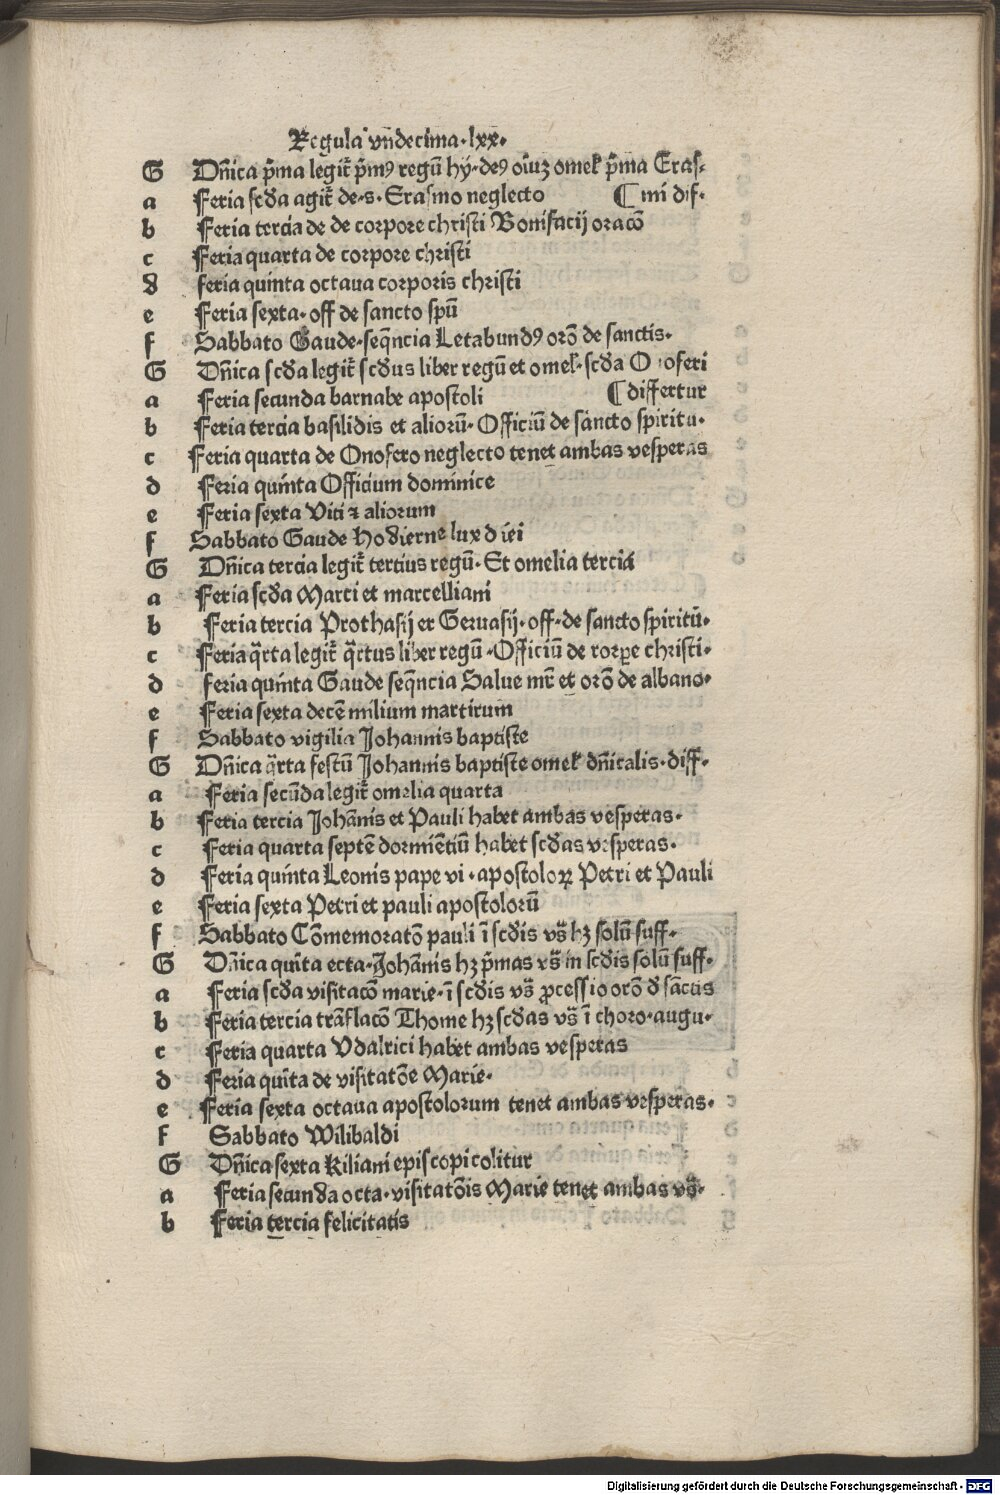 Regula vndecima. lxx.
G Dn̄ica p̄ma legit̄ p̄mꝰ regū hÿ. deꝰ oīuꝫ omel̄ p̄ma Eras⸗
a Feria scd̄a agit̄ de. s. Erasmo neglecto ¶ mi dif.
b Feria tercia de de corpore christi Bonifacij oracō
c Feria quarta de corpore christi
d feria quinta octaua corporis christi
e Feria sexta. off de sancto spū
f Sabbato Gaude. seq̄ncia Letabundꝰ orō de sanctis.
G Dn̄ica scd̄a legit̄ scd̄us liber regū et omel̄. scd̄a Onoferi
a Feria secunda barnabe apostoli ¶ differtur
b Feria tercia basilidis et aliorū. Officiū de sancto spiritu.
c Feria quarta de Onofero neglecto tenet ambas vesperas
d Feria quinta Officium dominice
e Feria sexta Viti ⁊ aliorum
f Sabbato Gaude Hodierne lux diei
G Dn̄ica tercia legit̄ tertius regū. Et omelia tercia
a Feria scd̄a Marci et marcelliani
b Feria tercia Prothasij er Geruasij. off. de sancto spiritū.
c Feria q̄rta legit̄ q̄rtus liber regū. Officiū de rorꝑe christi.
d feria quinta Gaude seq̄ncia Salue mr̄ et orō de albano.
e Feria sexta decē milium martirum
f Sabbato vigilia Johannis baptiste
G Dn̄ica q̄rta festū Johannis baptiste omel̄ dn̄icalis. diff.
a Feria secūda legit̄ omelia quarta
b Feria tercia Johānis et Pauli habet ambas vesperas.
c Feria quarta septē dormiētiū habet scd̄as vesperas.
d Feria quinta Leonis pape vi. apostoloꝝ Petri et Pauli
e Feria sexta Petri et pauli apostolorū
f Sabbato Cōmemoratō pauli ī scd̄is vs̄ hꝫ solū suff.
G Dn̄ica quīta octa. Johānis hꝫ p̄mas vs̄ in scd̄is solū suff.
a Feria scd̄a visitacō marie. ī scd̄is vs̄ ꝓcessio orō d̄ sāctis
b Feria tercia trāslacō Thome hꝫ scd̄as vs̄ ī choro. augu.
c Feria quarta Vdalrici habet ambas vesperas
d Feria quīta de visitatōe Marie.
e Feria sexta octaua apostolorum tenet ambas vesperas.
f Sabbato Wilibaldi
G Dn̄ica sexta Kiliani episcopi colitur
a Feria secunda octa. visitatōis Marie tenet ambas vs̄.
b Feria tercia felicitatis
Digitalisierung gefördert durch die Deutsche Forschungsgemeinschaft - DFG